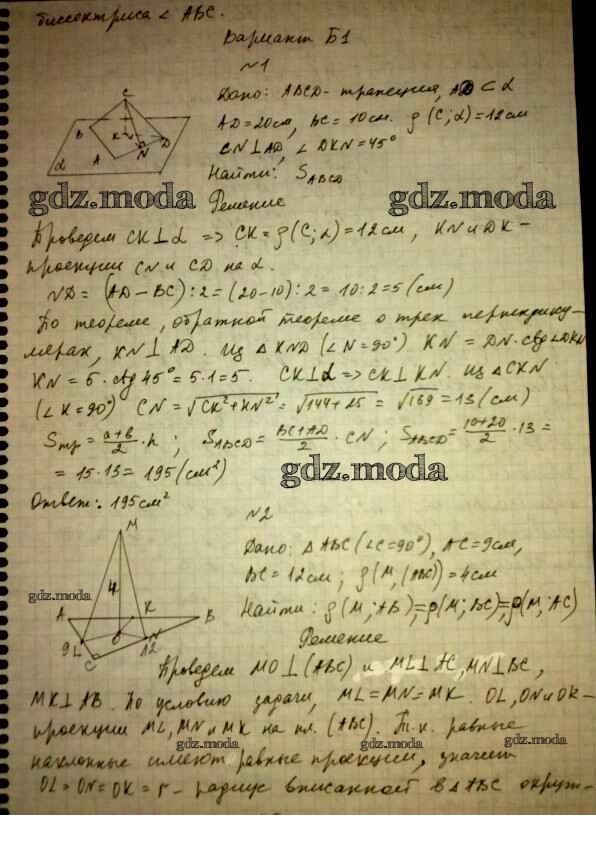 биссектриса ∠ ABC.
Вариант Б1
№1
Дано: ABCD - трапеция, AD ⊂ α
AD = 20см, BC = 10см. ρ(C; α) = 12см
CN ⊥ AD, ∠ DKN = 45°
Найти: S_ABCD
gdz.moda gdz.moda
Решение
Проведем CK ⊥ α => CK = ρ(C; α) = 12см, KN и DK -
проекции CN и CD на α.
ND = (AD - BC) : 2 = (20 - 10) : 2 = 10 : 2 = 5 (см)
По теореме, обратной теореме о трех перпендику-
лярах, KN ⊥ AD. Из △ KND (∠ N = 90°) KN = DN · ctg ∠DKN
KN = 5 · ctg 45° = 5 · 1 = 5. CK ⊥ α => CK ⊥ KN. Из △ CKN
(∠ K = 90°) CN = √CK² + KN² = √144 + 25 = √169 = 13 (см)
Sтр = a+b/2 · h ; S_ABCD = BC+AD/2 · CN ; S_ABCD = 10+20/2 · 13 =
= 15 · 13 = 195 (см²)
gdz.moda
Ответ: 195 см²
№2
Дано: △ ABC (∠C = 90°), AC = 9см,
BC = 12см ; ρ(M, (ABC)) = 4см
gdz.moda
Найти: ρ(M; AB) = ρ(M; BC) = ρ(M; AC)
Решение
Проведем MO ⊥ (ABC) и ML ⊥ AC, MN ⊥ BC,
MK ⊥ AB. По условию задачи, ML = MN = MK. OL, ON и OK -
проекции ML, MN и MK на пл. (ABC). Т.к. равные
gdz.moda gdz.moda gdz.moda
наклонные имеют равные проекции, значит
OL = ON = OK = r - радиус вписанной в △ ABC окруж-
C
B
K
D
A
N
α
M
4
A
K
B
9
L
O
N
12
C